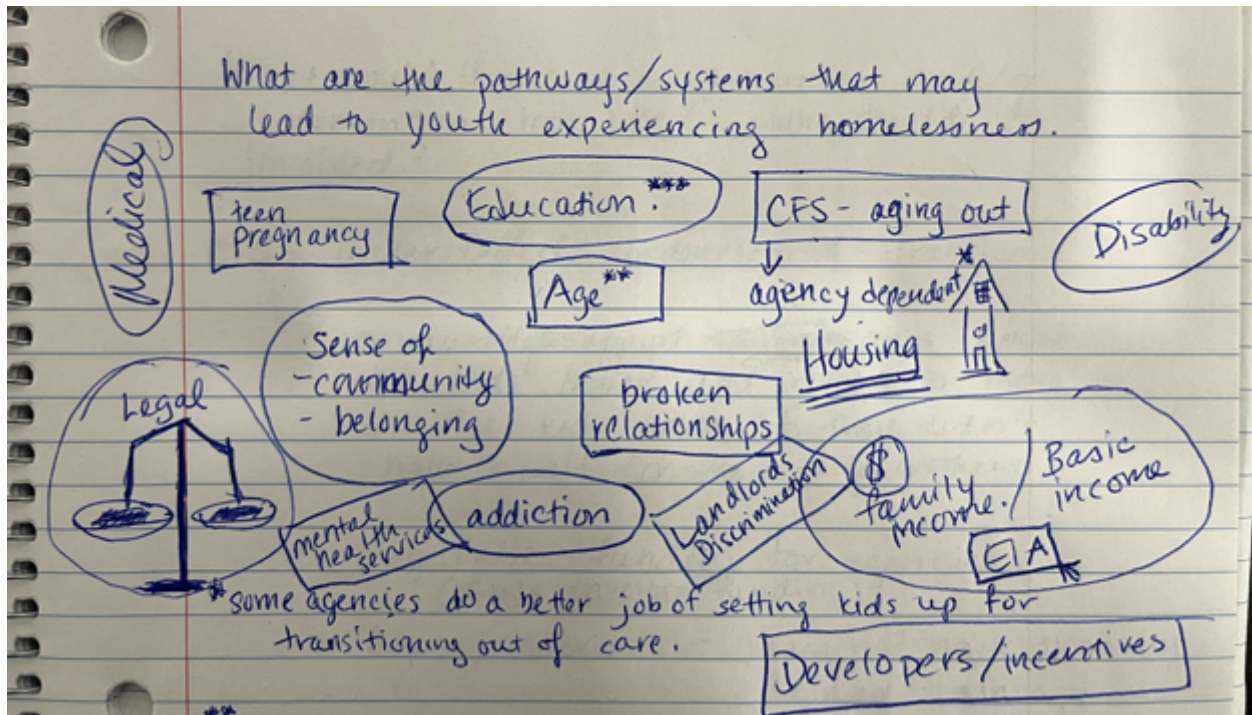 What are the pathways/systems that may
lead to youth experiencing homelessness.
Medical
teen
pregnancy
Education.***
CFS - aging out
Disability
Age**
agency dependent*
Housing
Sense of
- community
- belonging
broken
relationships
Legal
$
family
income. / Basic
income
EIA
Landlords
Discrimination
mental
health
services
addiction
*some agencies do a better job of setting kids up for
transitioning out of care.
Developers/incentives
**